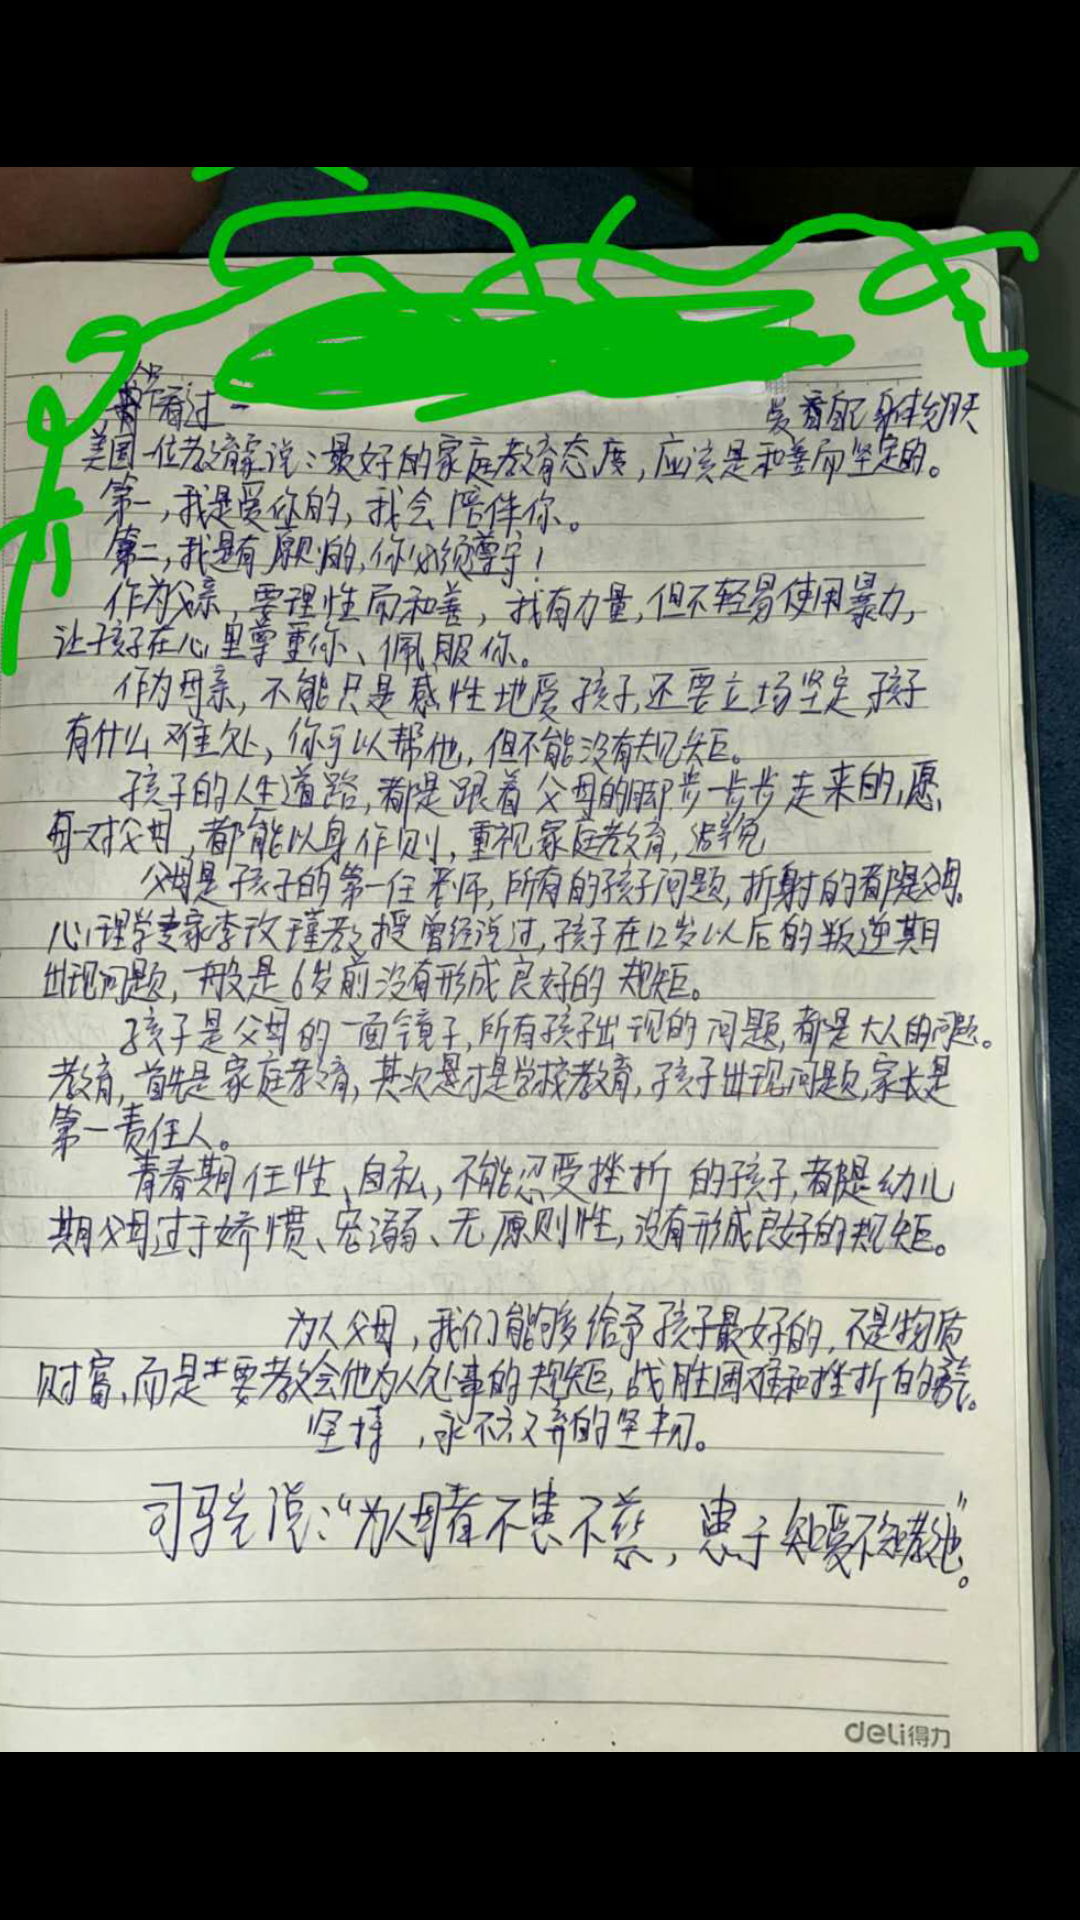 看过一
美国一位教育家说：最好的家庭教育态度，应该是和善而坚定的。
第一，我是爱你的，我会陪伴你。
第二，我是有原则的，你必须遵守！
作为父亲，要理性而和善，我有力量，但不轻易使用暴力，
让孩子在心里尊重你、佩服你。
作为母亲，不能只是感性地爱孩子，还要立场坚定，孩子
有什么难处，你可以帮他，但不能没有规矩。
孩子的人生道路，都是跟着父母的脚步一步步走来的，愿
每一对父母，都能以身作则，重视家庭教育，
父母是孩子的第一任老师，所有的孩子问题，折射的都是父母。
心理学专家李玫瑾教授曾经说过，孩子在12岁以后的叛逆期
出现问题，一般是6岁前没有形成良好的规矩。
孩子是父母的一面镜子，所有孩子出现的问题，都是大人的问题。
教育，首先是家庭教育，其次是才是学校教育，孩子出现问题，家长是
第一责任人。
青春期任性、自私，不能忍受挫折的孩子，都是幼儿
期父母过于娇惯、宠溺、无原则性，没有形成良好的规矩。
为人父母，我们能够给予孩子最好的，不是物质
财富，而是要教会他为人处事的规矩，战胜困难和挫折的勇气。
坚持，永不放弃的坚韧。
司马光说：“为人母者不患不慈，患于知爱不知教也”。
deli得力